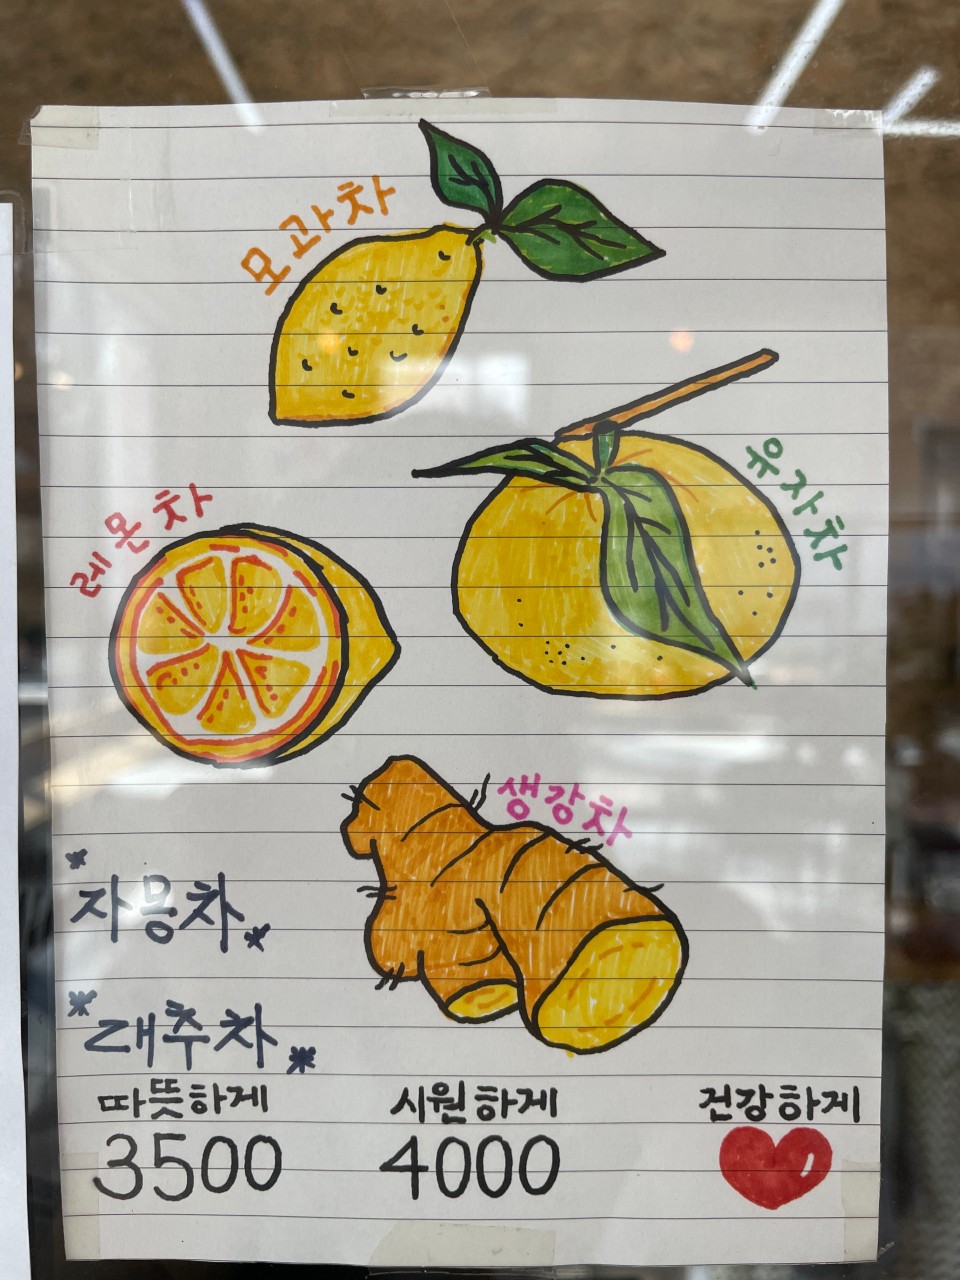 모과차
유자차
레몬차
생강차
*자몽차*
*대추차*
따뜻하게 시원하게 건강하게
3500 4000